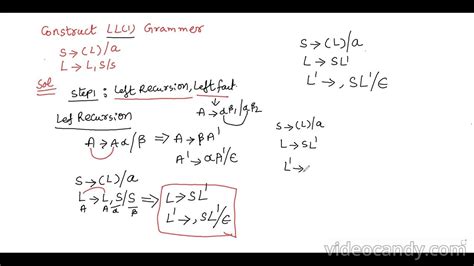 Construct LL(1) Grammer
S → (L)/a
L → L,S/S
Sol
Step1 : Left Recursion, Left fact
A → αβ1/αβ2
Lef Recursion
A → Aα/β ⇒ A → βA'
A' → αA'/ε
S → (L)/a
L → L,S/S ⇒ L → SL'
A A α β
L' → ,SL'/ε
S → (L)/a
L → SL'
L' → ,SL'/ε
S → (L)/a
L → SL'
L' →
videocandy.com